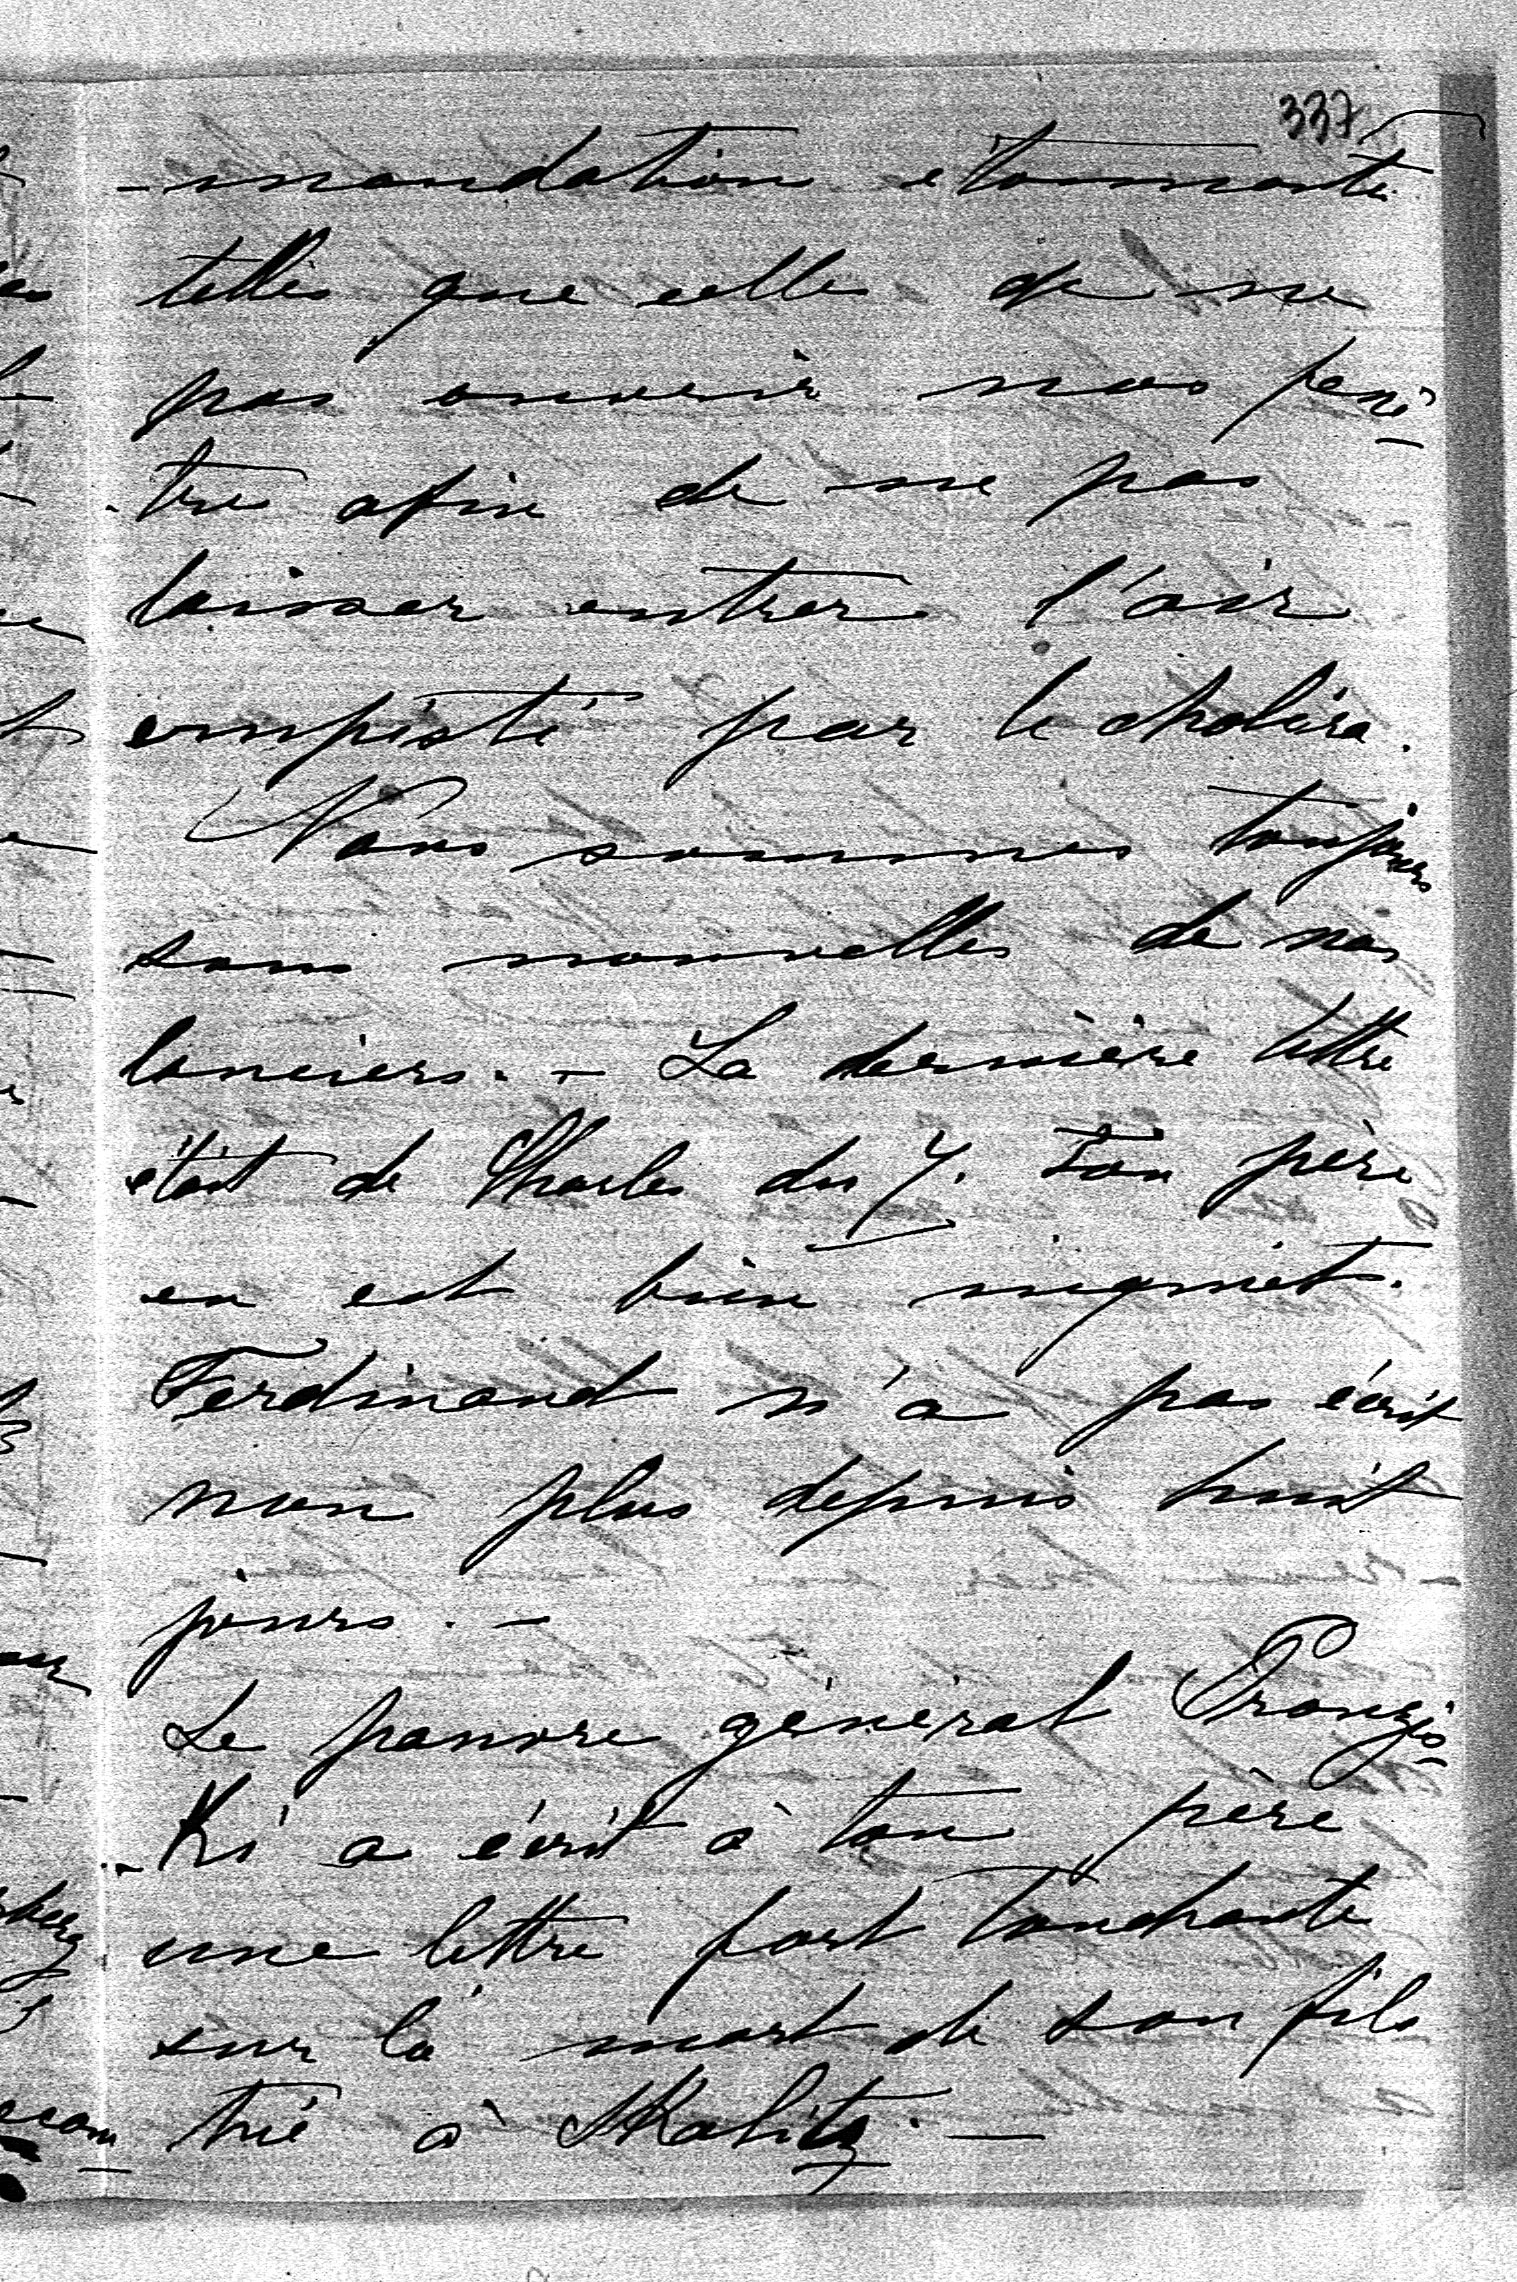 337
-mandations étonnante
telles que celle de ne
pas ouvrir nos fenê-
-tres afin de ne pas
laisser entrer l'air
empésté par le choléra.
Nous sommes toujours
sans nouvelles de nos
lanciers. - La dernière lettre
était de Charles du 7. Ton père
en est bien inquiet.
Ferdinand n'a pas écrit
non plus depuis huit
jours. -
Le pauvre général
-ki a écrit à ton père
une lettre fort touchante
sur la mort de son fils
tué à Skalitz. -